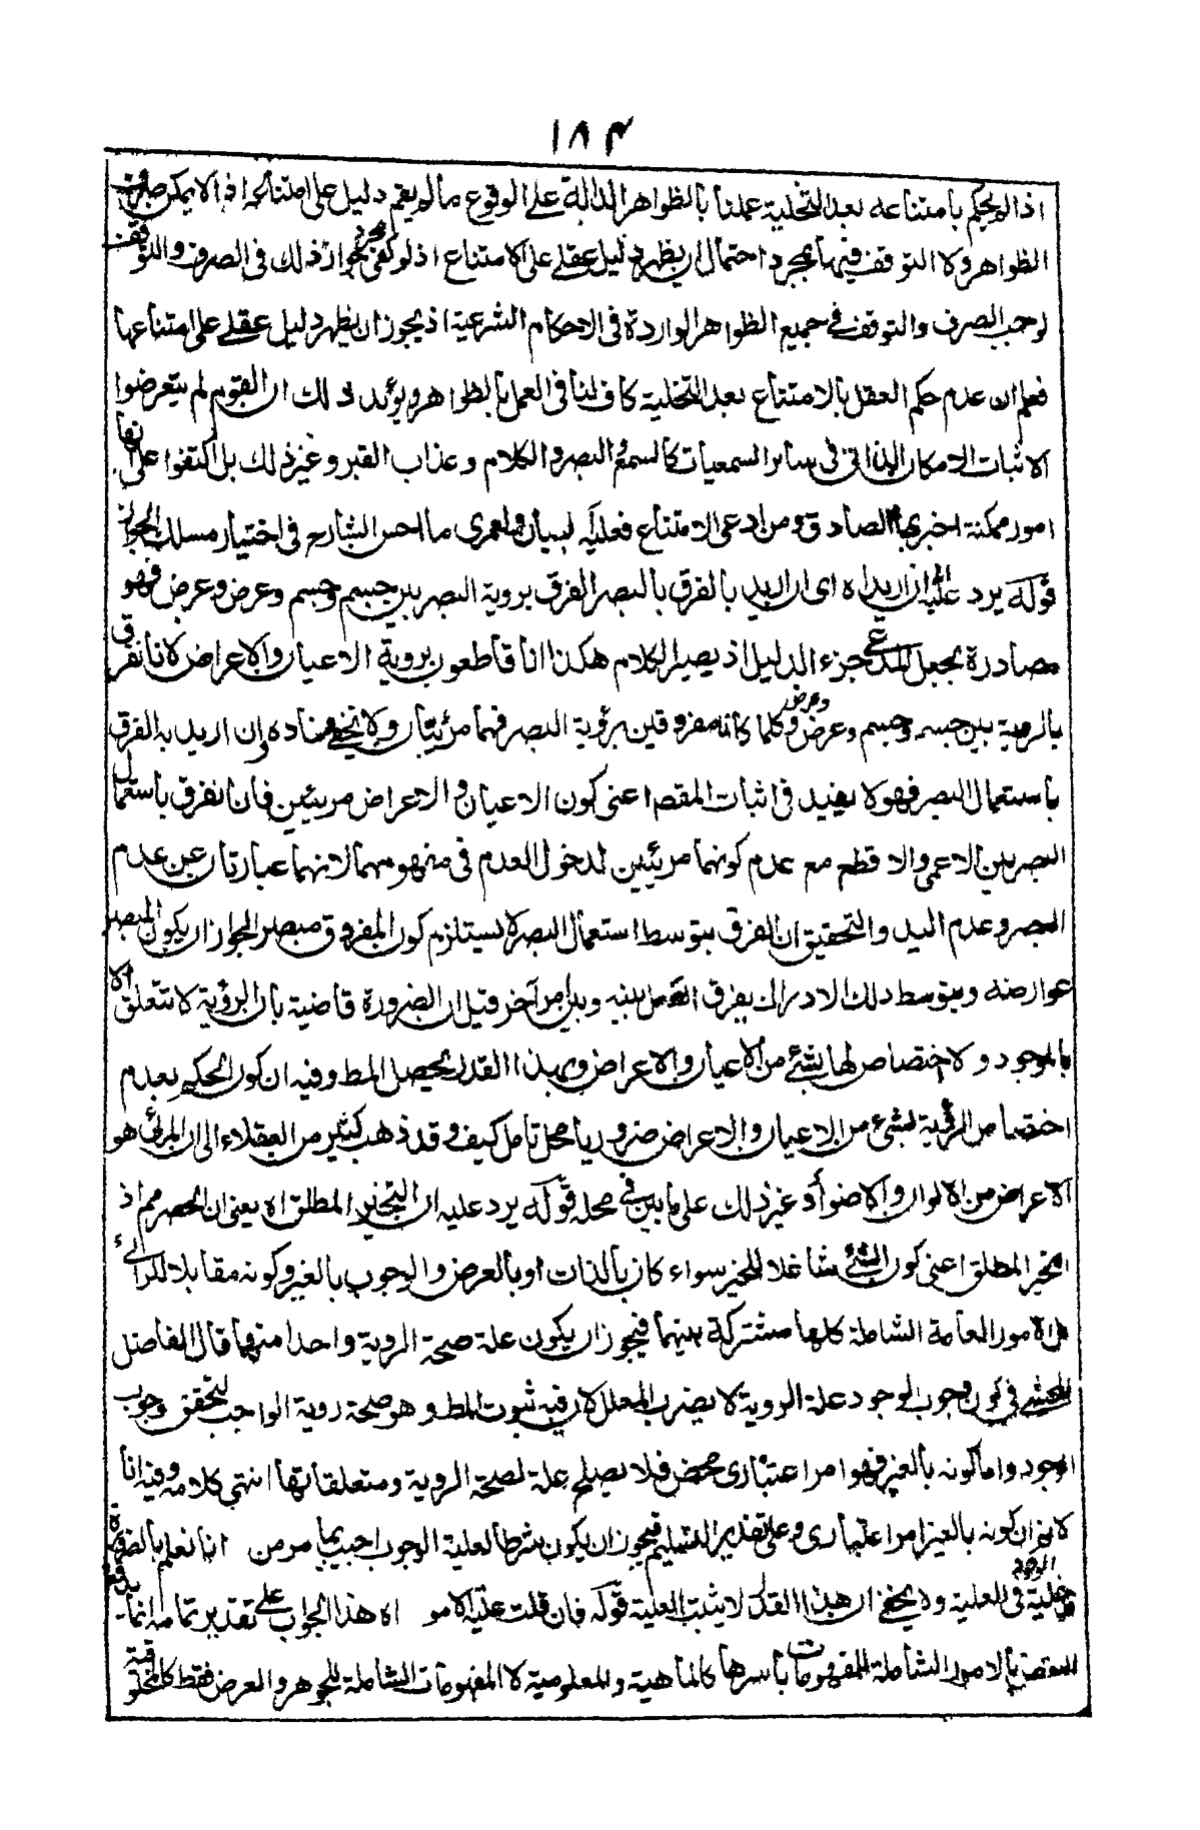 ١٨٤
اذا لم يحكم بامتناعه بعد التخلية عملنا بالظواهر الدالة على الوقوع مالم يقم دليل على امتناعه اذ لا يمكن صرف
الظواهر ولا التوقف فيها بمجرد احتمال ان يظهر دليل عقلے على الامتناع اذ لو كفى مجرد جواز ذلك فى الصرف والتوقف
لوجب الصرف والتوقف فے جميع الظواهر الواردة فى الاحكام الشرعية اذ يجوز ان يظهر دليل عقلے على امتناعها
فعلم ان عدم حكم العقل بالامتناع بعد التخلية كاف لنا فى العمل بالظواهر ويؤيد ذلك ان القوم لم يتعرضوا
لاثبات الامكان الذاتى فى سائر السمعيات كالسمع والبصر والكلام وعذاب القبر وغير ذلك بل اكتفوا على انها
امور ممكنة اخبر بها الصادق ومن ادعى الامتناع فعليه البيان ولعمرى ما احسن الشارح فى اختيار مسلك الجواز
قوله يرد عليه انه ان اريد اه اى ان اريد بالفرق بالبصر الفرق بروية البصر بين جسم وجسم وعرض وعرض فهو
مصادرة بجعل المدعى جزء الدليل اذ يصير الكلام هكذا انا قاطعون بروية الاعيان والاعراض لانا نفرق
بالروية بين جسم وجسم وعرض وعرض وكلما كانا مفروقين برؤية البصر فهما مرئيان ولا يخفے فساده وان اريد به الفرق
باستعمال البصر فهو لا يفيد فى اثبات المقصد اعنى كون الاعيان والاعراض مرئيين فان انفرق باستعمال
البصر بين الاعمى والاقطع مع عدم كونهما مرئيين لدخول العدم فى مفهومهما لانهما عبارتان عن عدم
البصر وعدم اليد والتحقيق ان الفرق بتوسط استعمال البصر لا يستلزم كون المفروق مبصرا لجواز ان يكون المبصر
عوارضه وبتوسط ذلك الادراك يفرق العقل بينه وبين امر آخر قيل ان الضرورة قاضية بان الرؤية لا تتعلق الا
بالموجود ولا اختصاص لها بشئ من الاعيان والاعراض وبهذا القدر يحصل المط وفيه ان كون الحكم بعدم
اختصاص الرؤية بشئ من الاعيان والاعراض ضروريا محل تامل كيف وقد ذهب كثير من العقلاء الى ان المرئى هو
الاعراض من الالوان والاضواء وغير ذلك على ما بين فى محله قوله يرد عليه ان التحيز المطلق اه يعنى ان الحصر مم اذ
التحيز المطلق اعنى كون الشئ شاغلا للحيز سواء كان بالذات او بالعرض والوجوب بالغير وكونه مقابلا للرائى
بل الامور العامة الشاملة كلها مشتركة بينهما فيجوز ان يكون علة صحة الروية واحدا منها قال الفاضل
المحشے فى كون وجوب الوجود علة الروية لا يضر بالمعلل لان فيه ثبوت المط وهو صحة روية الواجب لتحقق وجوب
الوجود واما كونه بالغير فهو امر اعتبارى محض فلا يصلح علة لصحة الروية ومتعلقاتها انتهى كلامه وفيه انا
لا نم ان كونه بالغير امر اعتبارى وعلى تقدير التسليم فيجوز ان يكون شرطا لعلية الوجوب اجيب بما مر من انا نعلم بالضرورة
مدخلية الوجود فى العلية ولا يخفے ان هذا القدر لا يثبت العلية قوله فان قلت علية الامو اه هذا الجواب على تقدير تمامه انما يدفع
النقض بالامور الشاملة للمفهومات باسرها كالماهية والمعلومية لا المفهومات الشاملة للجوهر والعرض فقط كالمخلوقية